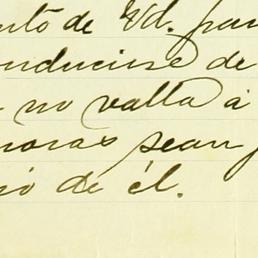 nto de Vd. para
onducirse de
no valla á
noras sean
ió de él.